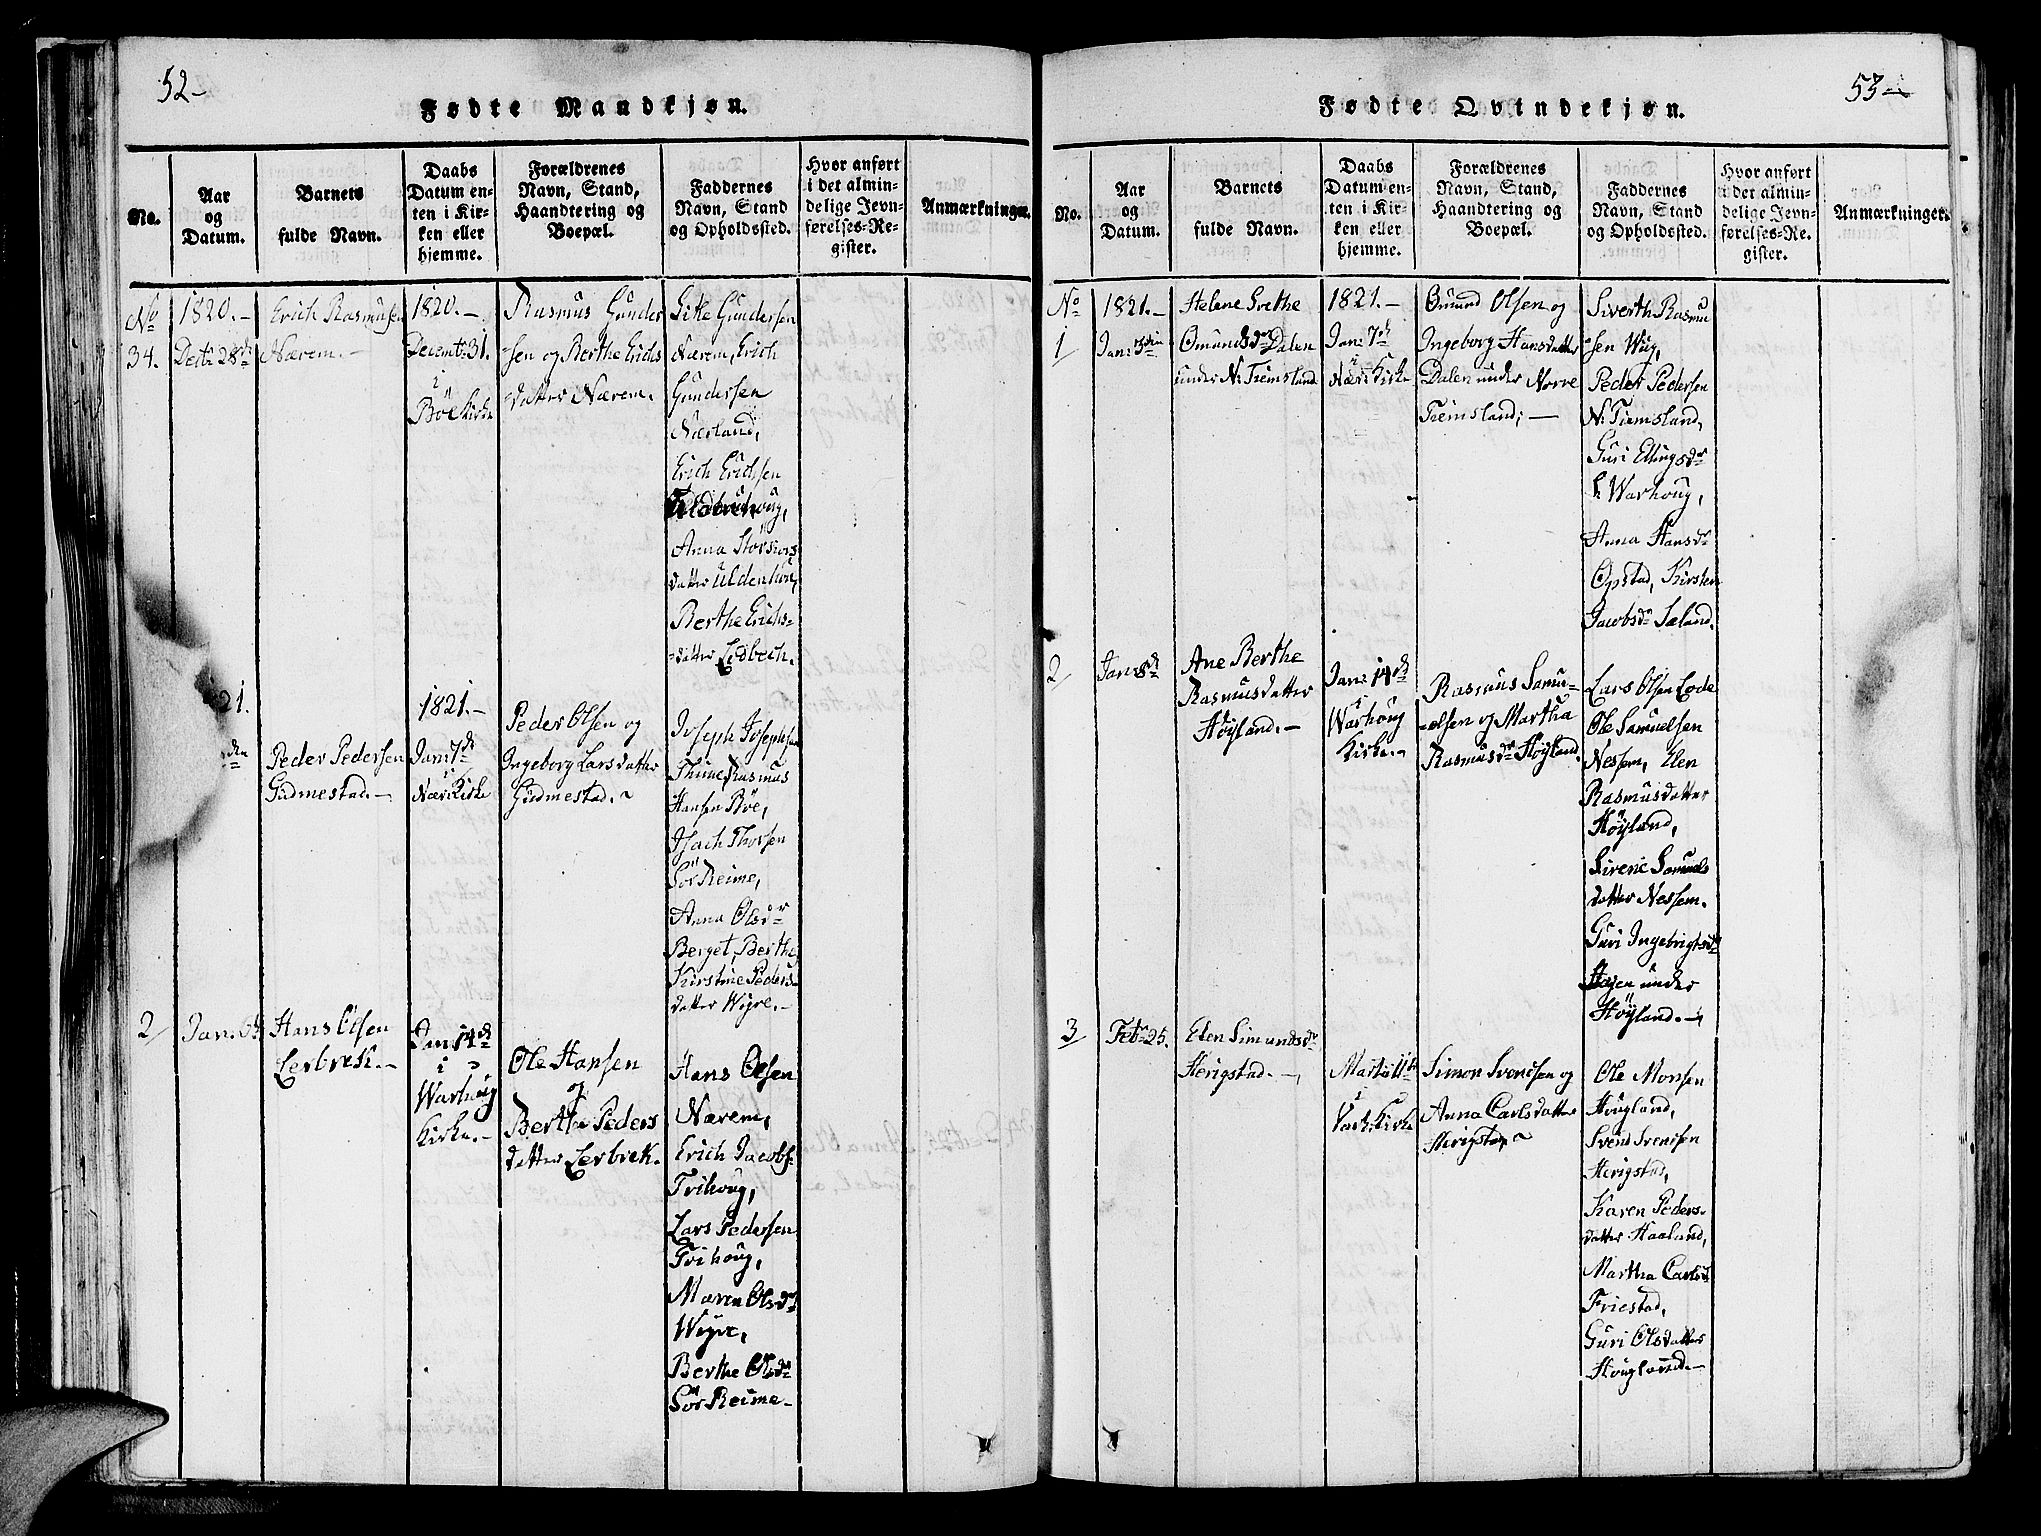 52-
Fødte Mandkjøn.
No.
Aar
og
Datum.
Barnets
fulde Navn.
Daabs
Datum en-
ten i Kir-
ken eller
hjemme.
Forældrenes
Navn, Stand,
Haandtering og
Boepæl.
Faddernes
Navn, Stand
og Opholdssted.
Hvor anført
i det almin-
delige Jevn-
førelses-Re-
gister.
Anmærkninger.
No
34.
1820.-
Decbr 28de
Erich Rasmusen
Nærem.-
1820.-
Decembr 31.
i
Böe Kirke
Rasmus Gunder
sen og Berthe Erichs
datter Nærem.
Eike Gundersen
Nærem, Erich
Gundersen
Nærland,
Erich Erichsen
Anna
datter
Berthe Erichs-
-datter Lodbech.
21.
den
Peder Pedersen
Gudmestad.-
1821.-
Jan: 7de
i
Nær: Kirke
Peder Olsen og
Ingeborg Larsdatter
Gudmestad.~
Joseph Josephsen
Thime, Rasmus
Hansen Böe,
Isach Thorsen
Sör Reime,
Anna Olsdr
Berget, Berthe
Kirstine Peders-
datter Wigre.-
2
Jan: 6te
Hans Olsen
Lerbrek.-
Jan: 14de
i
Warhoug
Kirke.-
Ole Hansen
og
Berthe Peders
datter Lerbrek.
Hans Olsen
Nærem,
Erich Jacobs:
Trihoug,
Lars Pedersen
Trihoug,
Maren Olsdr
Wigre,
Berthe Olsdr
Sör Reime-
53-
Fødte Qvindekjøn.
No.
Aar
og
Datum.
Barnets
fulde Navn.
Daabs
Datum en-
ten i Kir-
ken eller
hjemme.
Forældrenes
Navn, Stand,
Haandtering og
Boepæl.
Faddernes
Navn, Stand
og Opholdssted.
Hvor anført
i det almin-
delige Jevn-
førelses-Re-
gister.
Anmærkninger.
No
1
1821.-
Jan: 3die
Helene Grethe
Omundsdr Dalen
under N: Tiemsland
1821.-
Jan: 7de
i
Nær: Kirke
Omund Olsen og
Ingeborg Hansdatter
Dalen under Norre
Tiemsland;-
Siverth Rasmu
sen Wug,
Peder Pedersen
N: Tiemsland,
Guri Ellingsdr
Warhoug,
Anna Hansdr
Opstad, Kirsten
Jacobsdr Sæland.
2
Jan: 8de
Ane Berthe
Rasmusdatter
Höyland.-
Jan: 14de
i
Warhoug
Kirke.-
Rasmus Samu-
-elsen og Martha
Rasmusdr Höyland.
Lars Olsen Lode
Ole Samuelsen
Nessem, Elen
Rasmusdatter
Höyland,
Sirene Samuels
datter Nessem.
Guri Ingebrigtsdr
Hagen under
Höyland.-
3
Febr 25.
Elen Simundsdr
Herigstad.-
Marts 11te
i
Kirke
Simon Svendsen og
Anna Carlsdatter
Herigstad~
Ole Monsen
Hougland,
Svend Svendsen
Herigstad,
Karen Peders-
datter Haaland,
Martha Carlsdr
Friestad,
Guri Olsdatter
Hougland.-